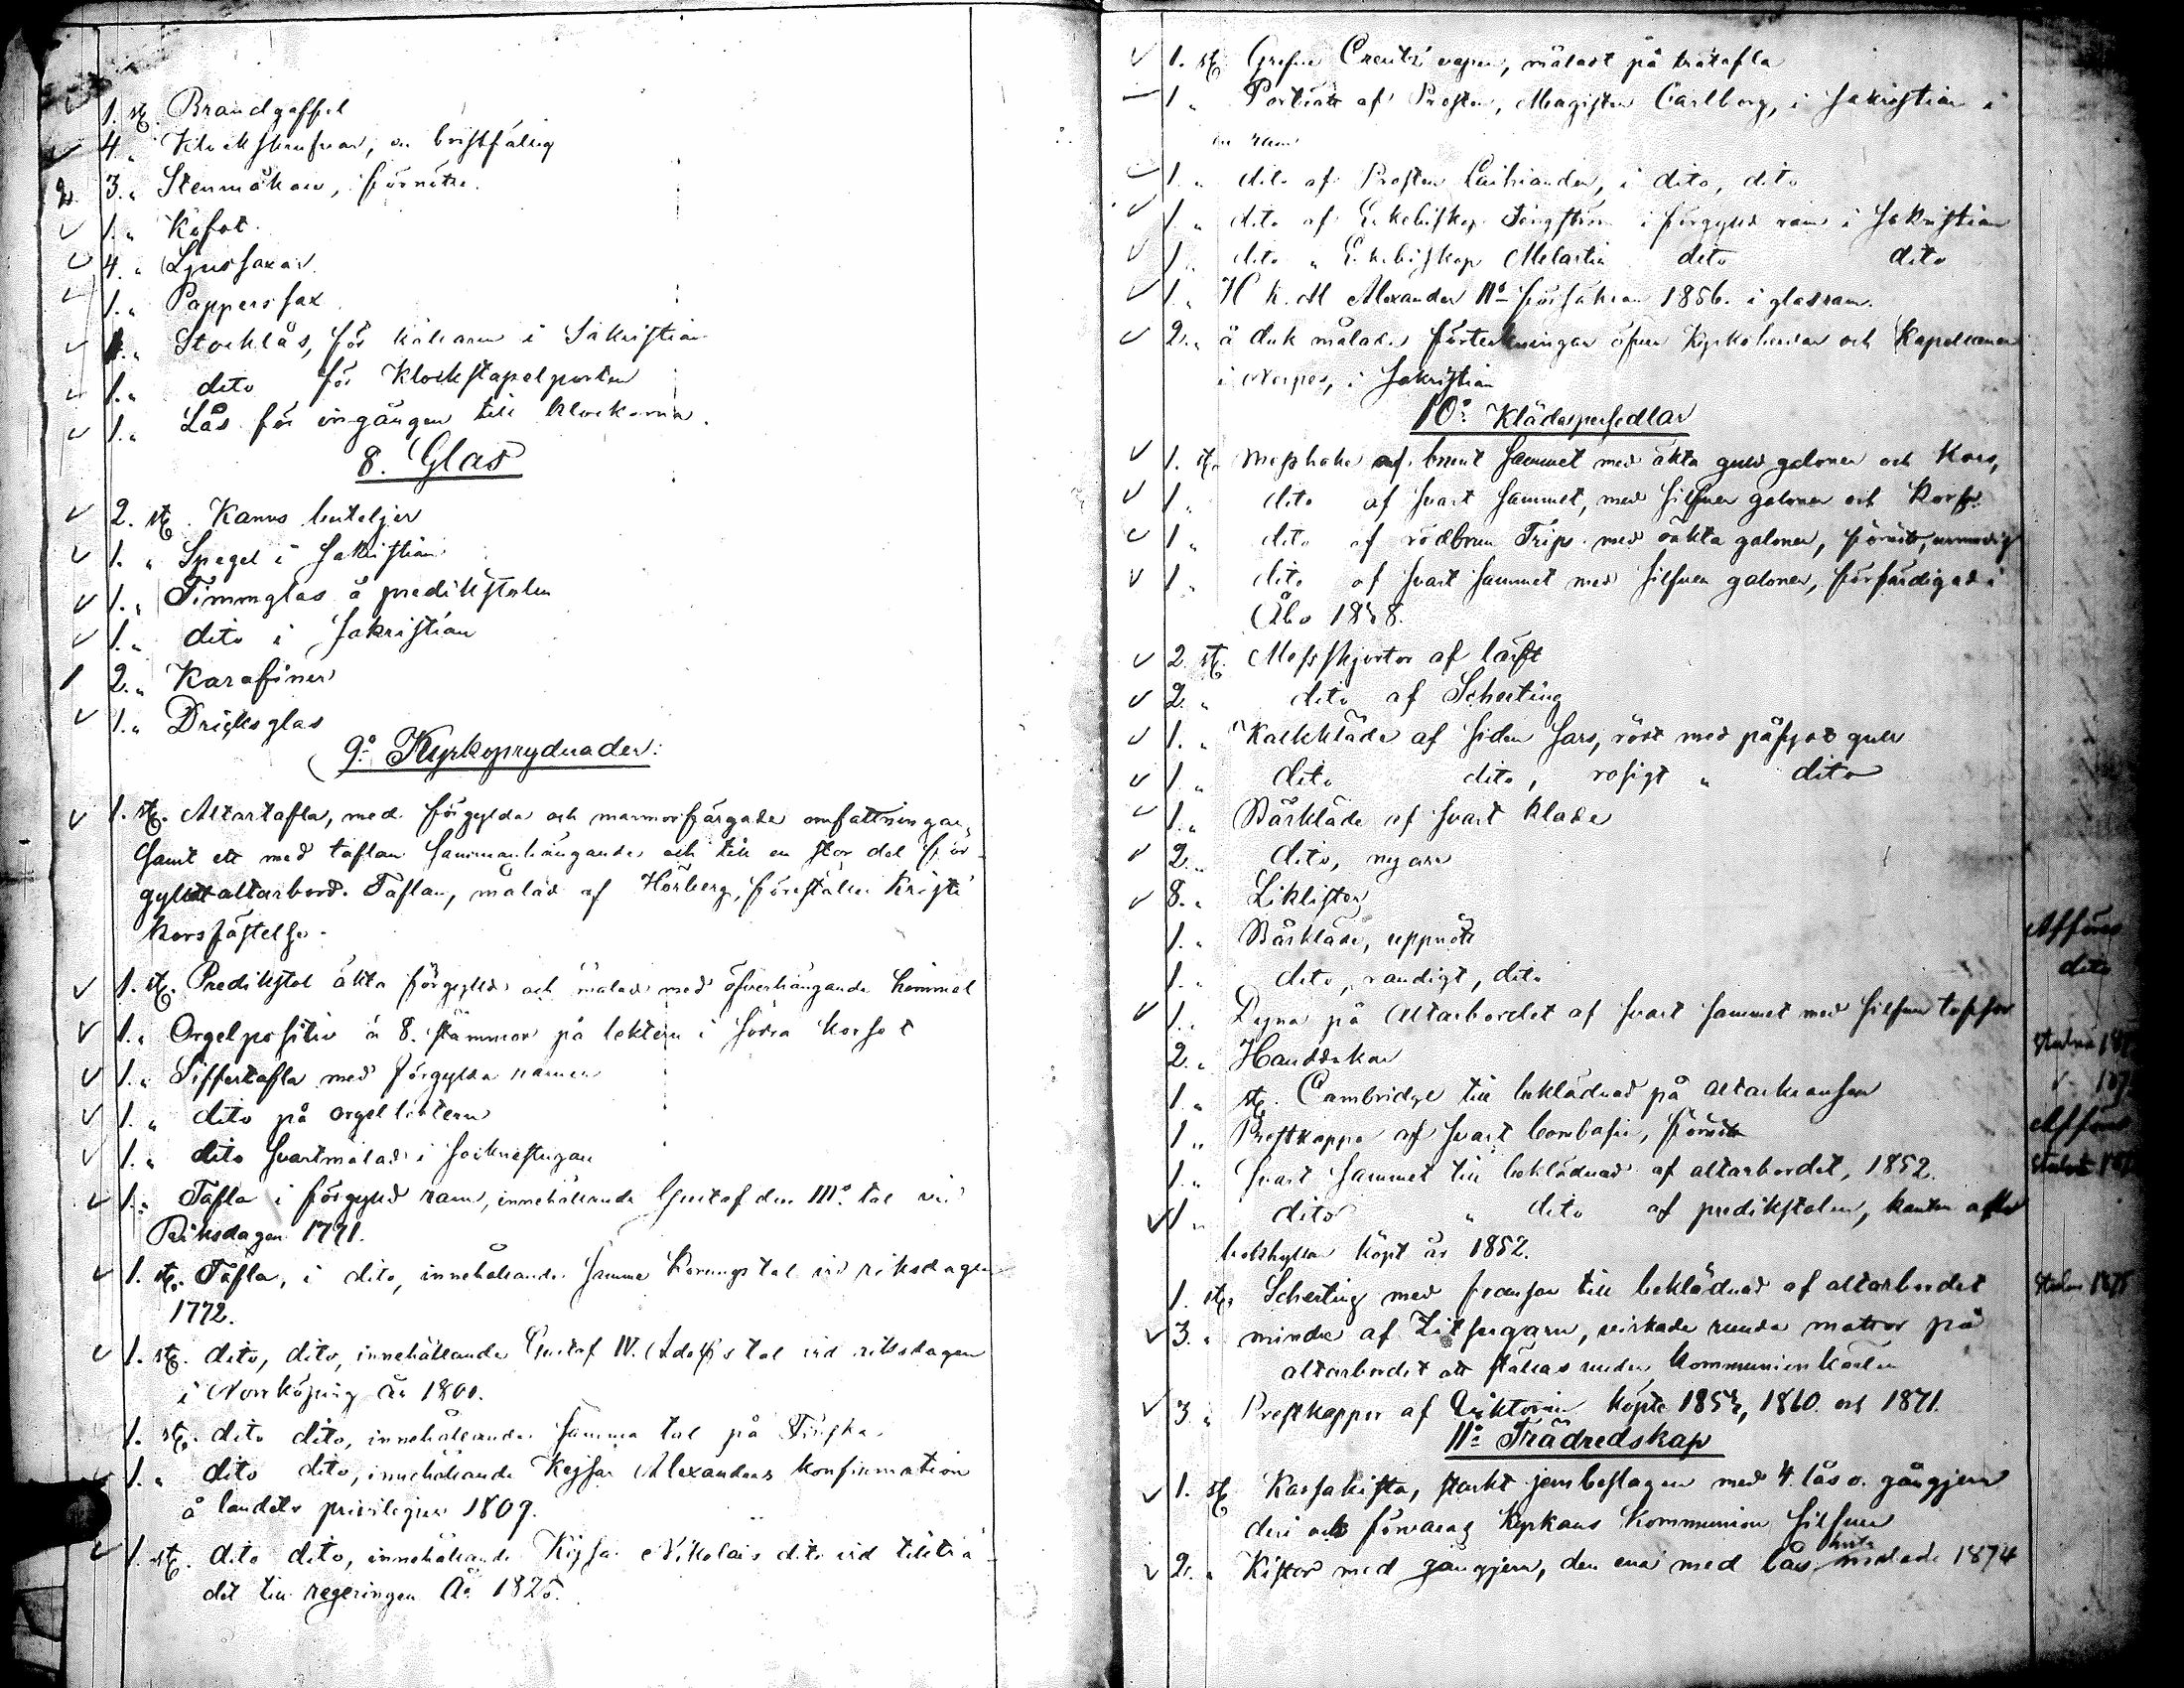 1. st. Brandgaffel
4. " Klockstrufvar, en bristfällig
2 3. " Stenmåkare, förnötte.
1. " Kofot.
4. " Ljussaxar.
1. " Papperssax
1. " Stocklås, för källaren i Sakristian
1. " dito för Klockstapelporten
1. " Lås för ingången till klockorna.
8. Glas
2. st. Kanns buteljer
1. " Spegel i Sakristian
1. " Timmglas å predikstolen
1. " dito i Sakristian
1 2. " Karafiner
1. " Dricksglas
9o Kyrkoprydnader:
1. st. Altartafla, med förgylda och marmorfärgade omfattningar,
samt ett med taflan sammanhängande och till en stor del för-
gylldt altarbord. Taflan, målad af Hörberg, föreställer Kristi
korsfästelse.
1. st. Predikstol äkta förgylld och målad med öfverhängande himmel
1. " Orgelpositiv à 8. stämmor på lektern i södra korset
1. " Siffertafla med förgylda ramar
1. " dito på orgellektern
1. " dito svartmålad i socknestugan
1. " Tafla i förgylld ram, innehållande Gustaf den IIIo tal vid
Riksdagen 1771.
1. st. Tafla, i dito, innehållande samma Konungs tal vid riksdagen
1772.
1. st. dito, dito, innehållande Gustaf IV. Adolfs tal vid riksdagen
i Norrköping år 1800.
1. st. dito dito, innehållande samma tal på Finska.
1. " dito dito, innehållande Kejsar Alexanders konfirmation
å landets privilegier 1809.
1. st. dito dito, innehållande Kejsar Nikolais dito vid tillträ-
det till regeringen År 1825.
1. st. Grefve Creutz' vapen, måladt på trätafla
1 " Porträtt af Prosten, Magister Carlborg, i Sakristian i
en ram
1. " dito af Prosten, i dito, dito
1 " dito af Erkebiskop Tengström i förgylld ram i Sakristian
1 " dito " Erkebiskop Melartin dito dito
1. " H K. M Alexander IIo försäkran 1856. i glasram.
2. " å duk målade förteckningar öfver Kyrkoherdar och Kapellaner
i Nerpes, i Sakristian
10o Klädespersedlar
1. st. Messhake af brunt sammet med äkta guld galoner och Kors,
1 " dito af svart sammet, med silfver galoner och Kors
1 " dito af rödbrun Trips med oäkta galoner, förnött,
1 " dito af svart sammet med silfver galoner, förfärdigad i
Åbo 1858.
2 st. Messskjortor af lärft
2. " dito af Scherting
1. " Kalkkläde af siden sars, rödt med påsydt guld
1 " dito dito, rosigt " dito
1. " Bårkläde af svart kläde
2. " dito, nyare
8. " Liklistor
1. " Bårkläde, uppnött
1. " dito, randigt, dito dito
1. " Dyna på Altarbordet af svart sammet med silfver tofsar
2. " Handdukar
1. " st. Cambridge till beklädnad på altarkransen
1 " Prestkappa af svart bombasin, förnött
1. " Svart sammet till beklädnad af altarbordet, 1852.
1 " dito " dito af predikstolen, kanten
bokhyllan köpt år 1852.
1. st. Scherting med fransar till beklädnad af altarbordet
3. " mindre af Zitsegarn, virkade runda mattor på
altarbordet att ställas under Kommunionkärlen
3 " Prestkappor af Viktorin köpte 1854, 1860. och 1871.
11o Trädredskap
1. st Kassakista, starkt jernbeslagen med 4. lås o. gångjern
deri och förvaras Kyrkans Kommunion silfver
2. " Kistor med gångjern, den ena med lås. målade 1874